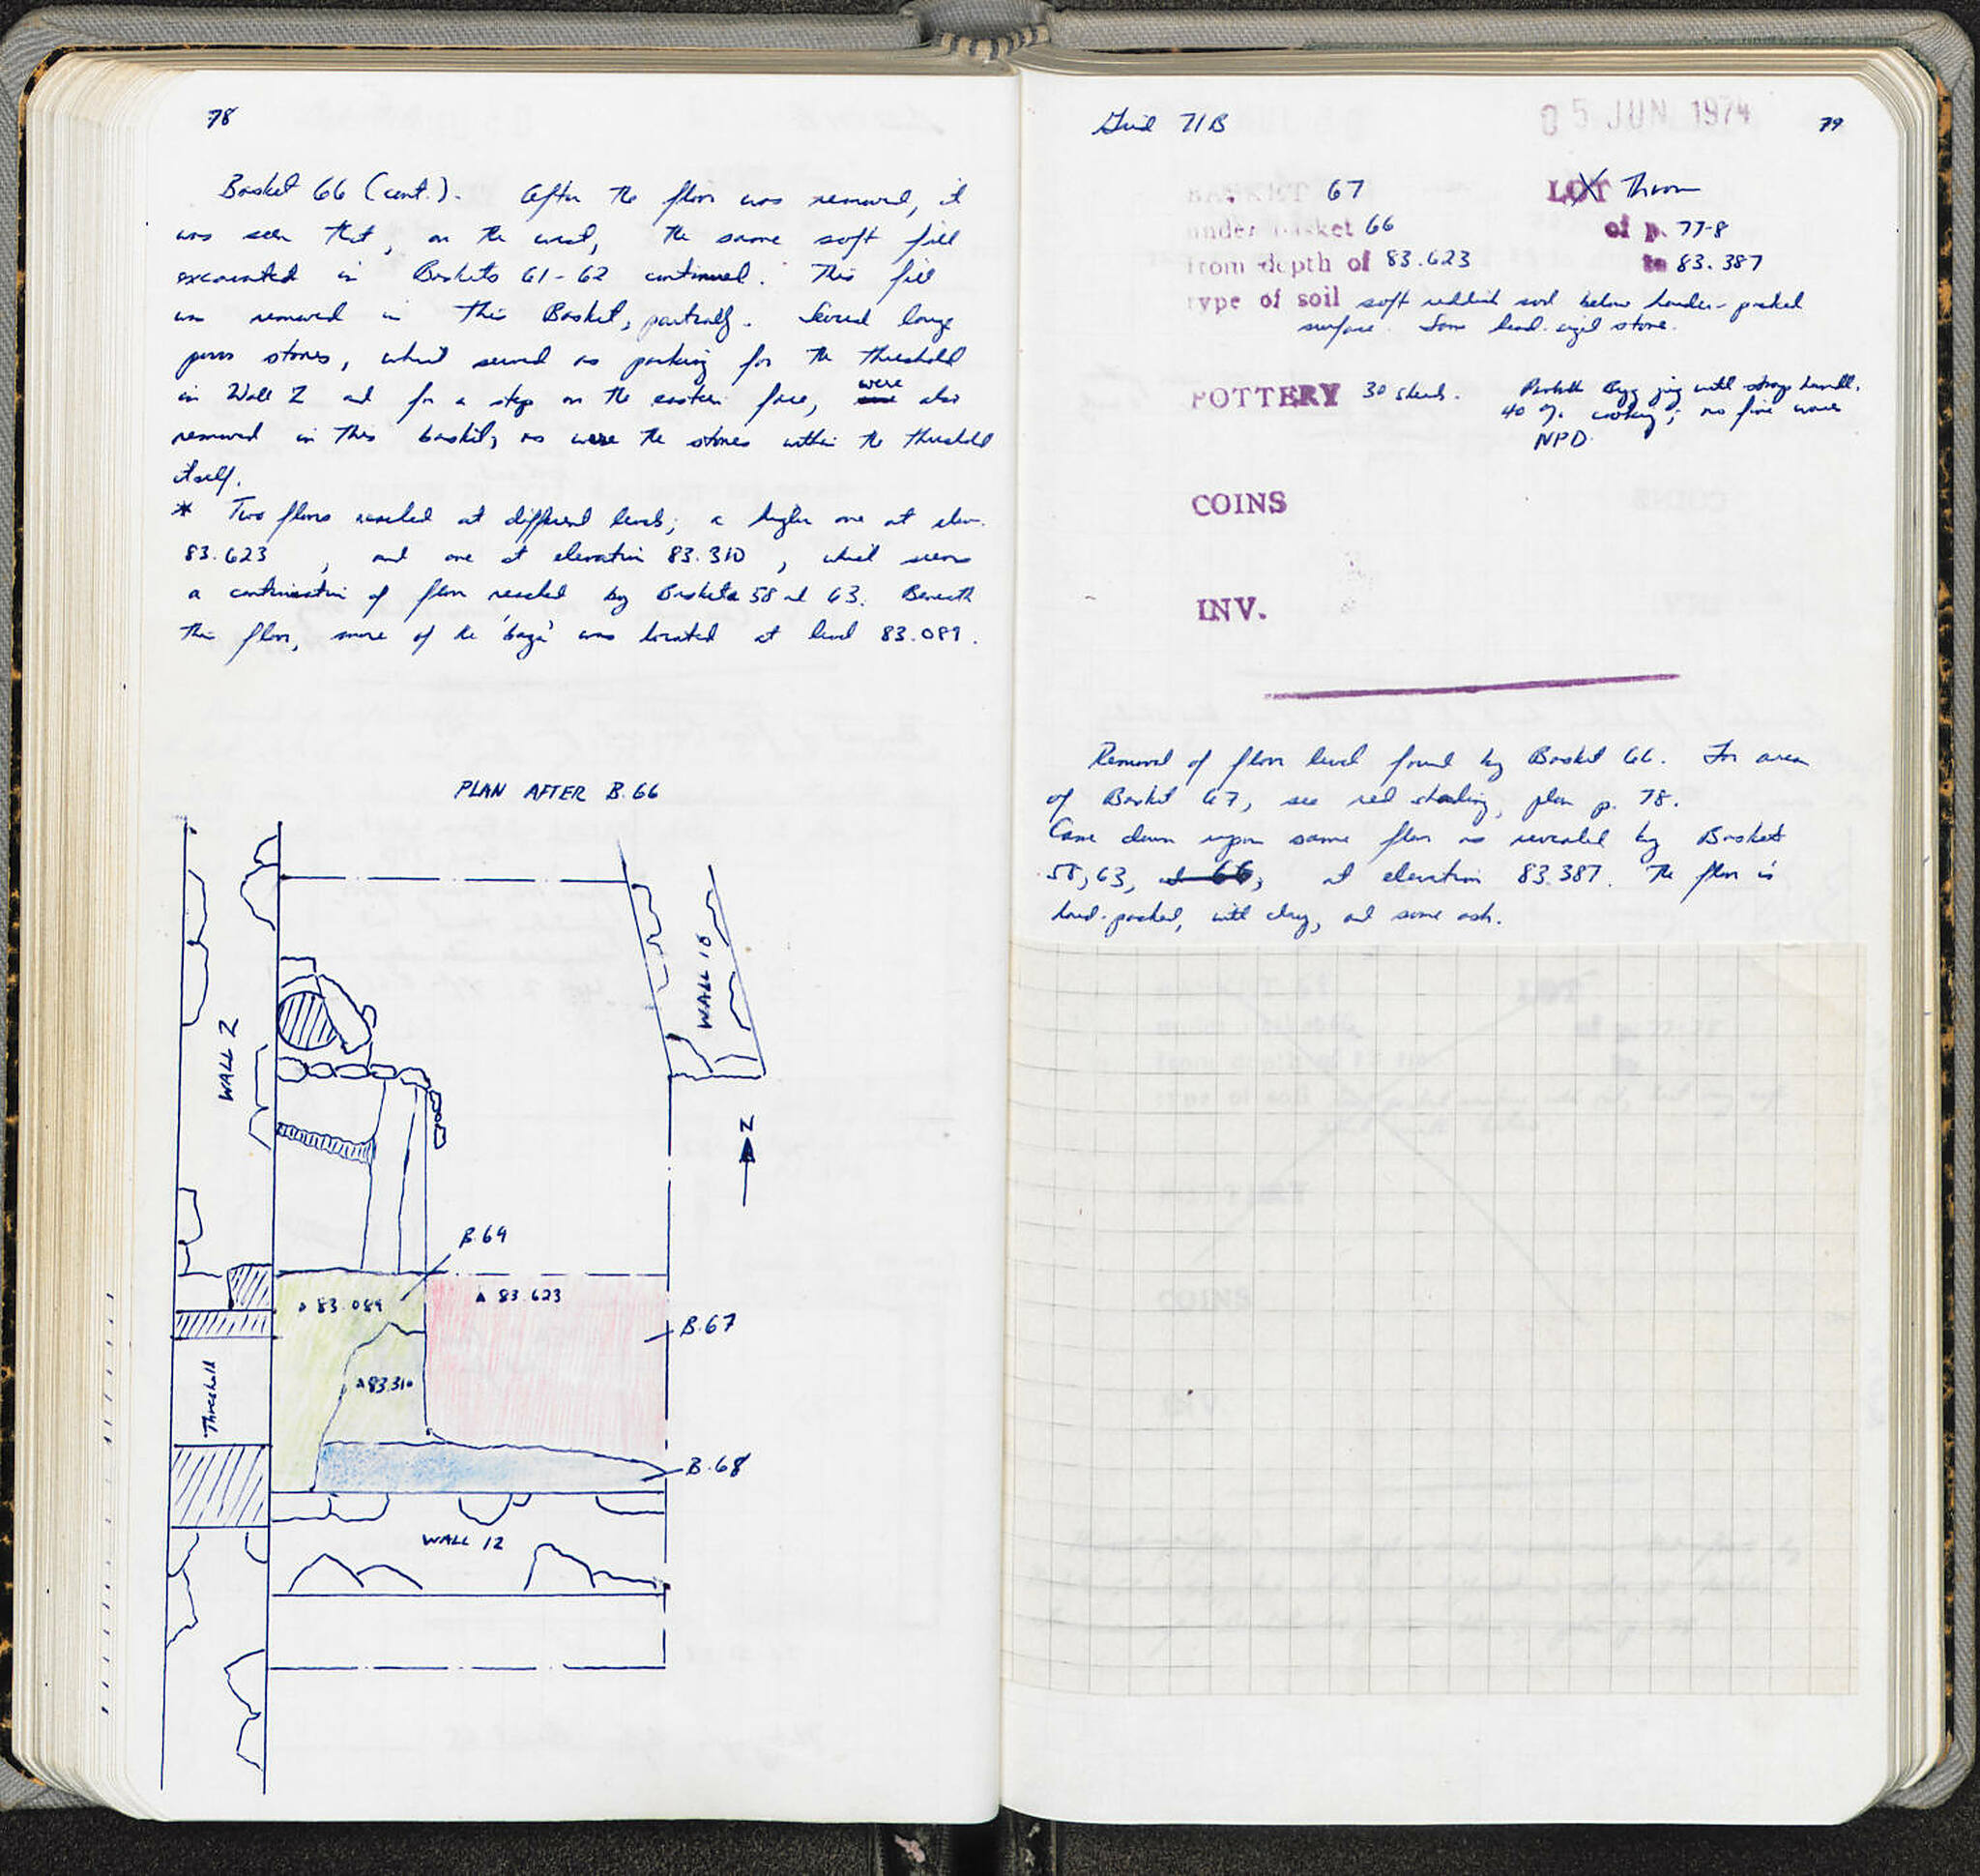 78
Basket 66 (cont.). After the floor was removed, it
was seen that, on the west, the same soft fill
excavated in Baskets 61-62 continued. This fill
was removed in this Basket, partially. Several large
poros stones, which served as packing for the threshold
in Wall 2 and for a step on the eastern face, were also
removed in this basket, as were the stones within the threshold
itself.
* Two floors reached at different levels; a higher one at elev.
83.623, and one at elevation 83.310, which seems
a continuation of floor reached by Baskets 58 and 63. Beneath
this floor, more of the was located at level 83.089.
PLAN AFTER B.66
WALL 18
WALL 2
N
B.69
83.089
83.623
B.67
Threshold
83.310
B.68
WALL 12
Grid 71B
05 JUN 1974
79
BASKET 67
LOT Thrown
under basket 66
of p. 77-8
from depth of 83.623
to 83.387
type of soil soft reddish soil below harder-packed
surface. Some head-sized stone.
POTTERY 30 sherds.
Byz jug with strap handle.
40 % cooking; no fine wares
NPD.
COINS
INV.
Removal of floor level found by Basket 66. For area
of Basket 67, see red shading, plan p. 78.
Came down upon same floor as revealed by Baskets
58, 63, and 66, at elevation 83.387. The floor is
hard-packed, with clay, and some ash.